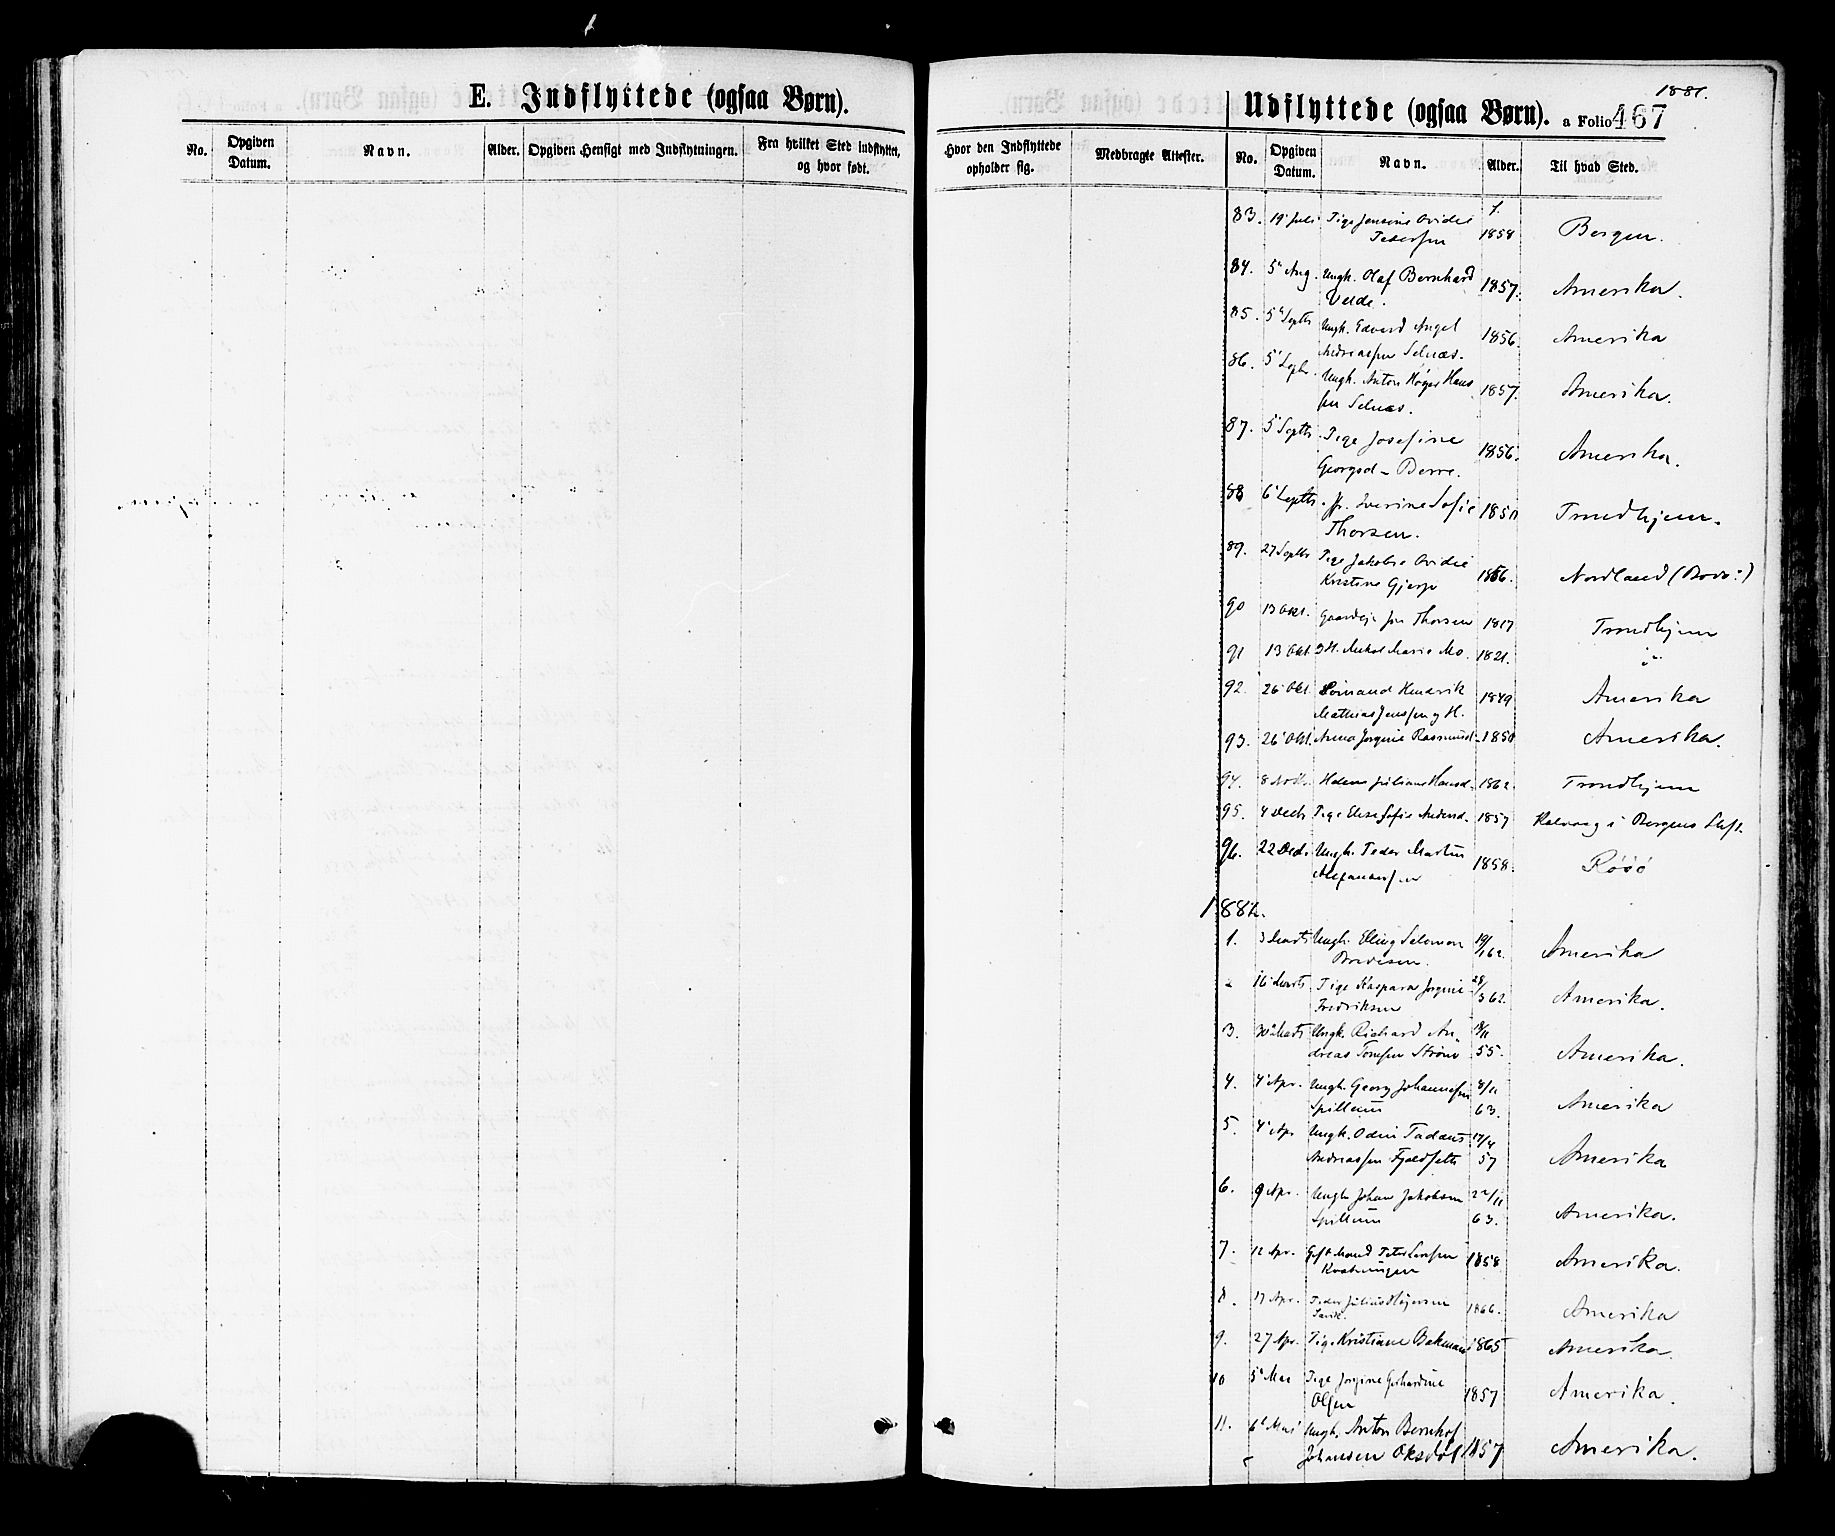 E. Indflyttede (ogsaa Børn).
No.
Opgiven Datum.
Navn.
Alder.
Opgiven Hensigt med Indflytningen.
Fra hvilket Sted Indflyttet, og hvor født.
1881.
Udflyttede (ogsaa Børn). a Folio 467
Hvor den Indflyttede opholder sig.
Medbragte Attester.
No.
Opgiven Datum.
Navn.
Alder.
Til hvad Sted.
83. 19 Juli Pige Jensine Ovidie
Pedersen 1858 Bergen.
84. 5 Aug. Ungk. Olaf Bernhard
1857. Amerika.
85. 5 Septb Ungk. Edvard Angel
Andreassen Selnæs. 1856. Amerika
86. 5 Septb. Ungk. Anton Høyer Hans
sen Selnæs. 1857. Amerika.
87. 5 Septb. Pige Josefine
Georgsd - Berre. 1856. Amerika.
88 6 Septb. Iverine Sofie
Thorsen. Trondhjem.
89. 27 Septb Pige Jakobie Ovidie
Kristine 1856. Nordland (Bodø:)
90 13 Okt. Thorsen 1817 Trondhjem
91 13 Okt. Marie Mo. 1821. "
92. 26 Okt. Hendrik
Mathias Jenssen 1849 Amerika
93. 26 Okt. Anna Jørgine Rasmusd. Amerika.
94. 8 Juliane Hansd. 1862. Trondhjem
95. 4 Decb Pige Elise Sofie 1857 i Bergens Stift.
96. 22 Decb. Ungk. Peder Martin
1858.
1882.
1. 3 Marts Ungk. Elling Salomon
19/1 62. Amerika
2 16 Marts Pige Kaspara Jørgine
Fredriksen 28/3 62. Amerika.
3. 30 Marts Ungk. Richard An-
dreas Tomsen Strøm 55. Amerika.
4. 4 Apr. Ungk. Georg Johannessen
Spillum 8/11 63. Amerika
5. 4 Apr Ungk. Odin Tadæus
Andreassen 17/4 57 Amerika
6. 9 Apr. Ungk. Johan Jakobsen
Spillum 22/11 63. Amerika.
7. 12 Apr. Gift Mand Peter
1858 Amerika.
8. 17 Apr. Peder Julius Høyersen
1866. Amerika
9. 27 Apr. Pige Kristiane Bekman 1865 Amerika.
10 5 Mai Pige Jørgine Gerhardine
Olsen 1857 Amerika.
11. 6 Mai Ungk. Anton Bernhof
Johansen Oksdøl 1857 Amerika.